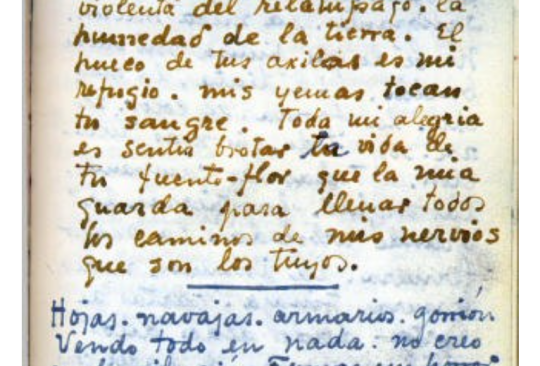 violenta del relampago. la
humedad de la tierra. El
hueco de tus axilas es mi
refugio. mis yemas tocan
tu sangre. Toda mi alegria
es sentir brotar tu vida de
tu fuente-flor que la mia
guarda para llenar todos
los caminos de mis nervios
que son los tuyos.
Hojas. navajas. armarios. gorrión
Vendo todo en nada. no creo